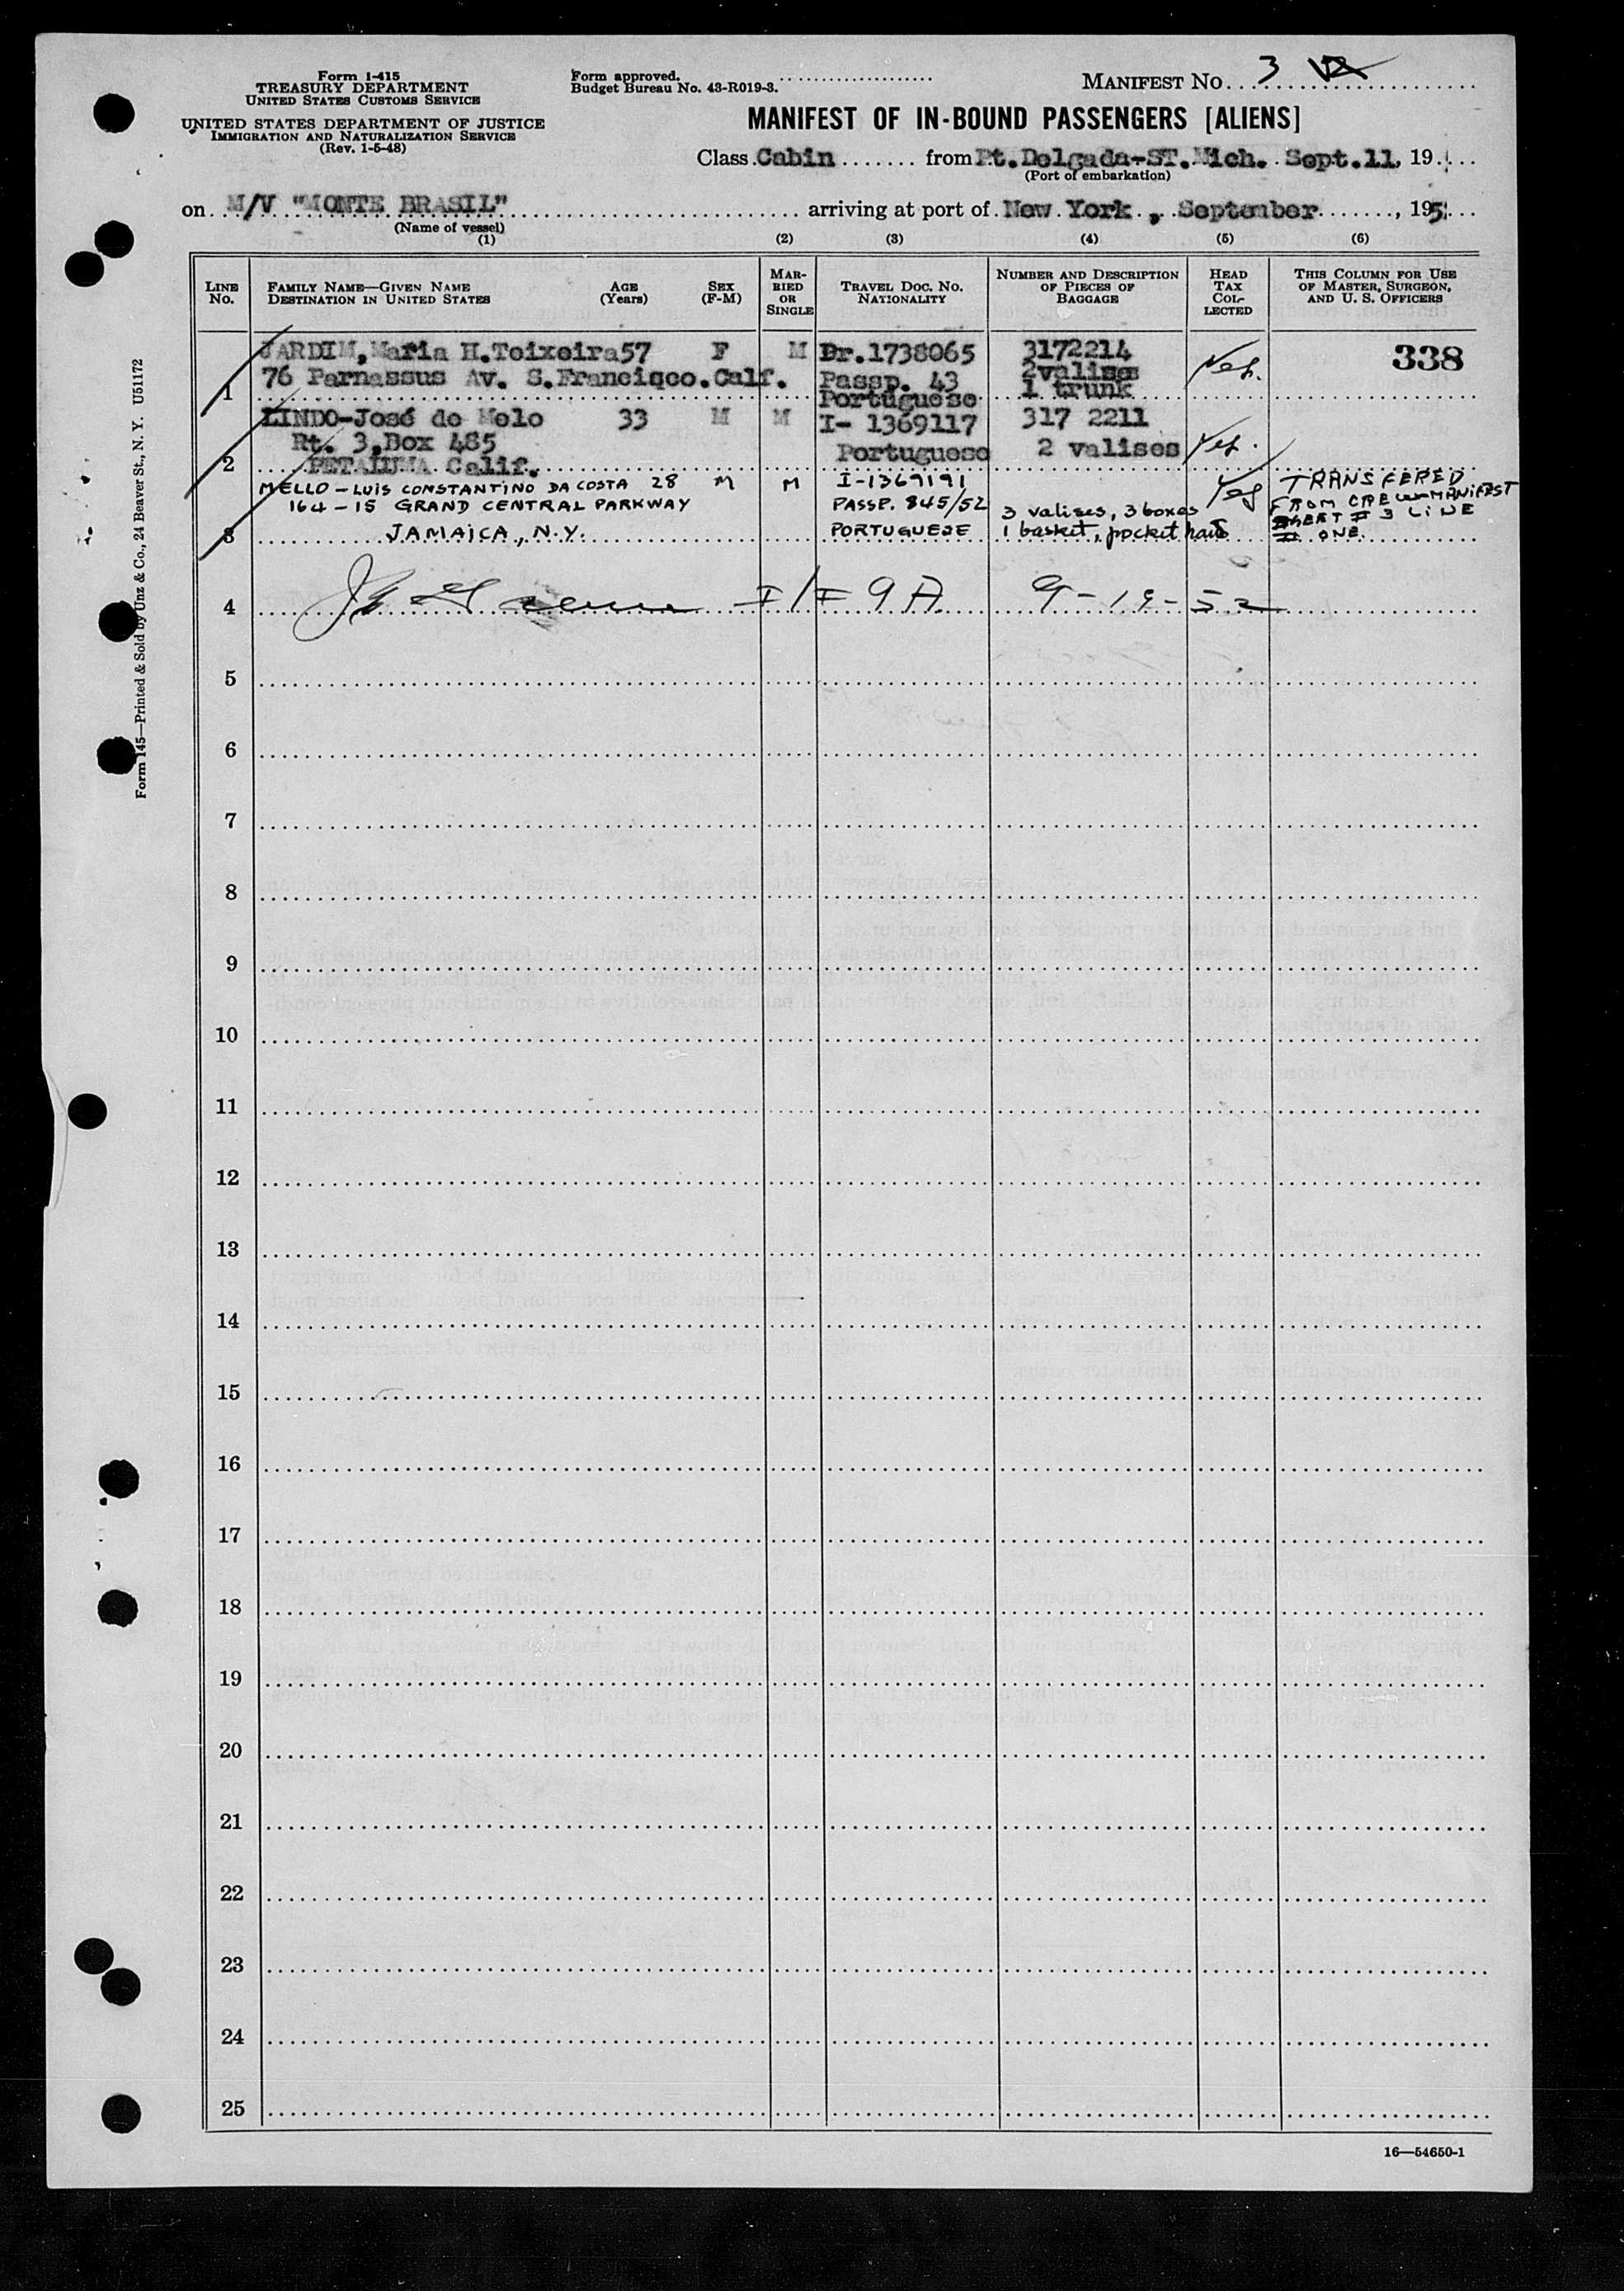 Form I-415
TREASURY DEPARTMENT
UNITED STATES CUSTOMS SERVICE
UNITED STATES DEPARTMENT OF JUSTICE
IMMIGRATION AND NATURALIZATION SERVICE
(Rev. 1-5-48)
Form approved.
Budget Bureau No. 43-R019-3.
MANIFEST NO. 3
MANIFEST OF IN-BOUND PASSENGERS [ALIENS]
Class Cabin from Pt. Delgada-ST. Mich. Sept. 11, 19
(Port of embarkation)
on M/V "MONTE BRASIL" arriving at port of New York, September, 195
(Name of vessel)
(1) (2) (3) (4) (5) (6)
LINE NO.
FAMILY NAME—GIVEN NAME
DESTINATION IN UNITED STATES
AGE (Years)
SEX (F-M)
MARRIED OR SINGLE
TRAVEL DOC. NO.
NATIONALITY
NUMBER AND DESCRIPTION OF PIECES OF BAGGAGE
HEAD TAX COLLECTED
THIS COLUMN FOR USE OF MASTER, SURGEON, AND U. S. OFFICERS
JARDIM, Maria H. Teixeira 57 F M Br. 1738065 3172214 338
76 Parnassus Av. S. Francisco. Calf. Passp. 43 2valises Yes.
1 Portuguese 1 trunk
LINDO-José de Melo 33 M M I- 1369117 317 2211
Rt. 3, Box 485 Portuguese 2 valises Yes.
2 PETALUMA Calif.
MELLO - LUIS CONSTANTINO DA COSTA 28 M M I-1369191 Yes TRANSFERED
164 - 15 GRAND CENTRAL PARKWAY PASSP. 845/52 3 valises, 3 boxes FROM CREW MANIFEST
3 JAMAICA, N.Y. PORTUGUESE 1 basket, pocket SHEET # 3 LINE
# ONE.
4 9-19-52
5
6
7
8
9
10
11
12
13
14
15
16
17
18
19
20
21
22
23
24
25
16—54650-1
Form 145—Printed & Sold by Unz & Co., 24 Beaver St., N. Y. U51172